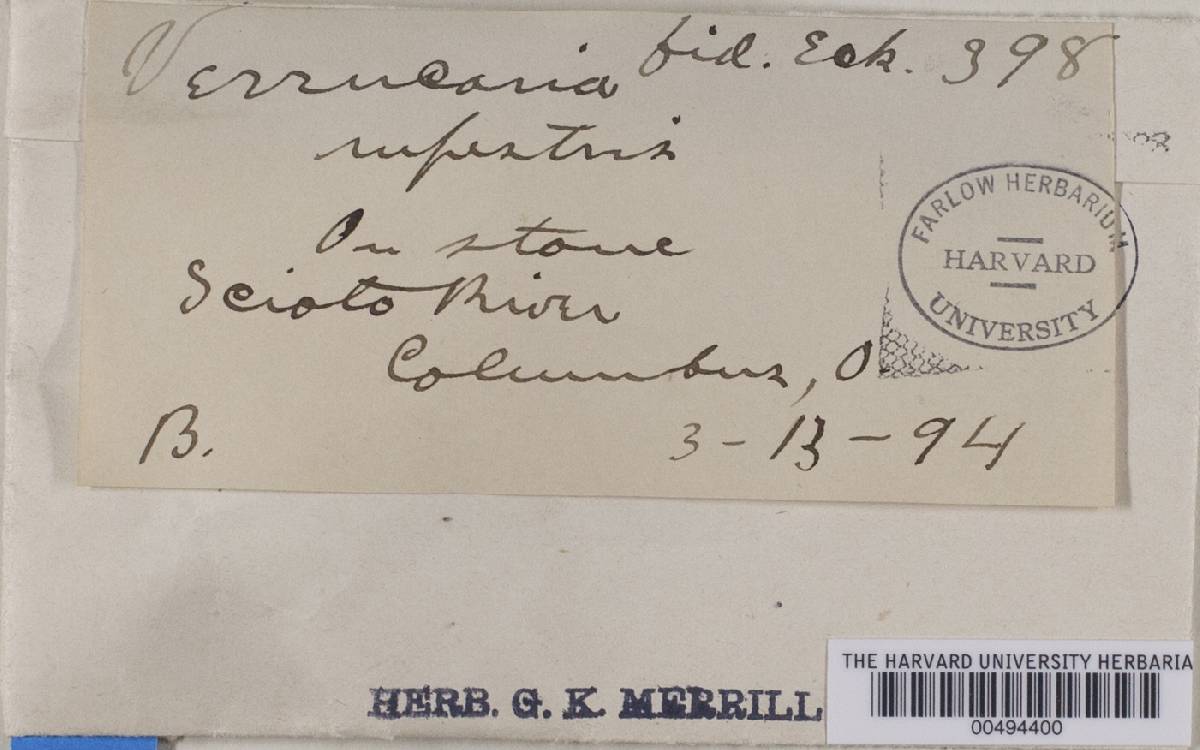 Verrucaria fid. Eck. 398
rupestris
On stone
Scioto River
Columbus, O.
B. 3-13-94
FARLOW HERBARIUM
HARVARD
UNIVERSITY
HERB. G. K. MERRILL
THE HARVARD UNIVERSITY HERBARIA
00494400